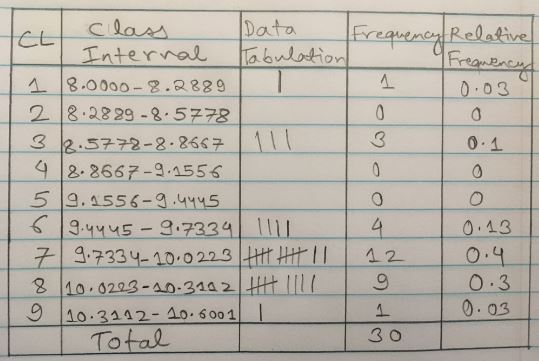 CL Class Internal Data Tabulation Frequency Relative Frequency
1 8.0000-8.2889 | 1 0.03
2 8.2889-8.5778 0 0
3 8.5778-8.8667 ||| 3 0.1
4 8.8667-9.1556 0 0
5 9.1556-9.4445 0 0
6 9.4445-9.7334 |||| 4 0.13
7 9.7334-10.0223 |||| |||| || 12 0.4
8 10.0223-10.3112 |||| |||| 9 0.3
9 10.3112-10.6001 | 1 0.03
Total 30